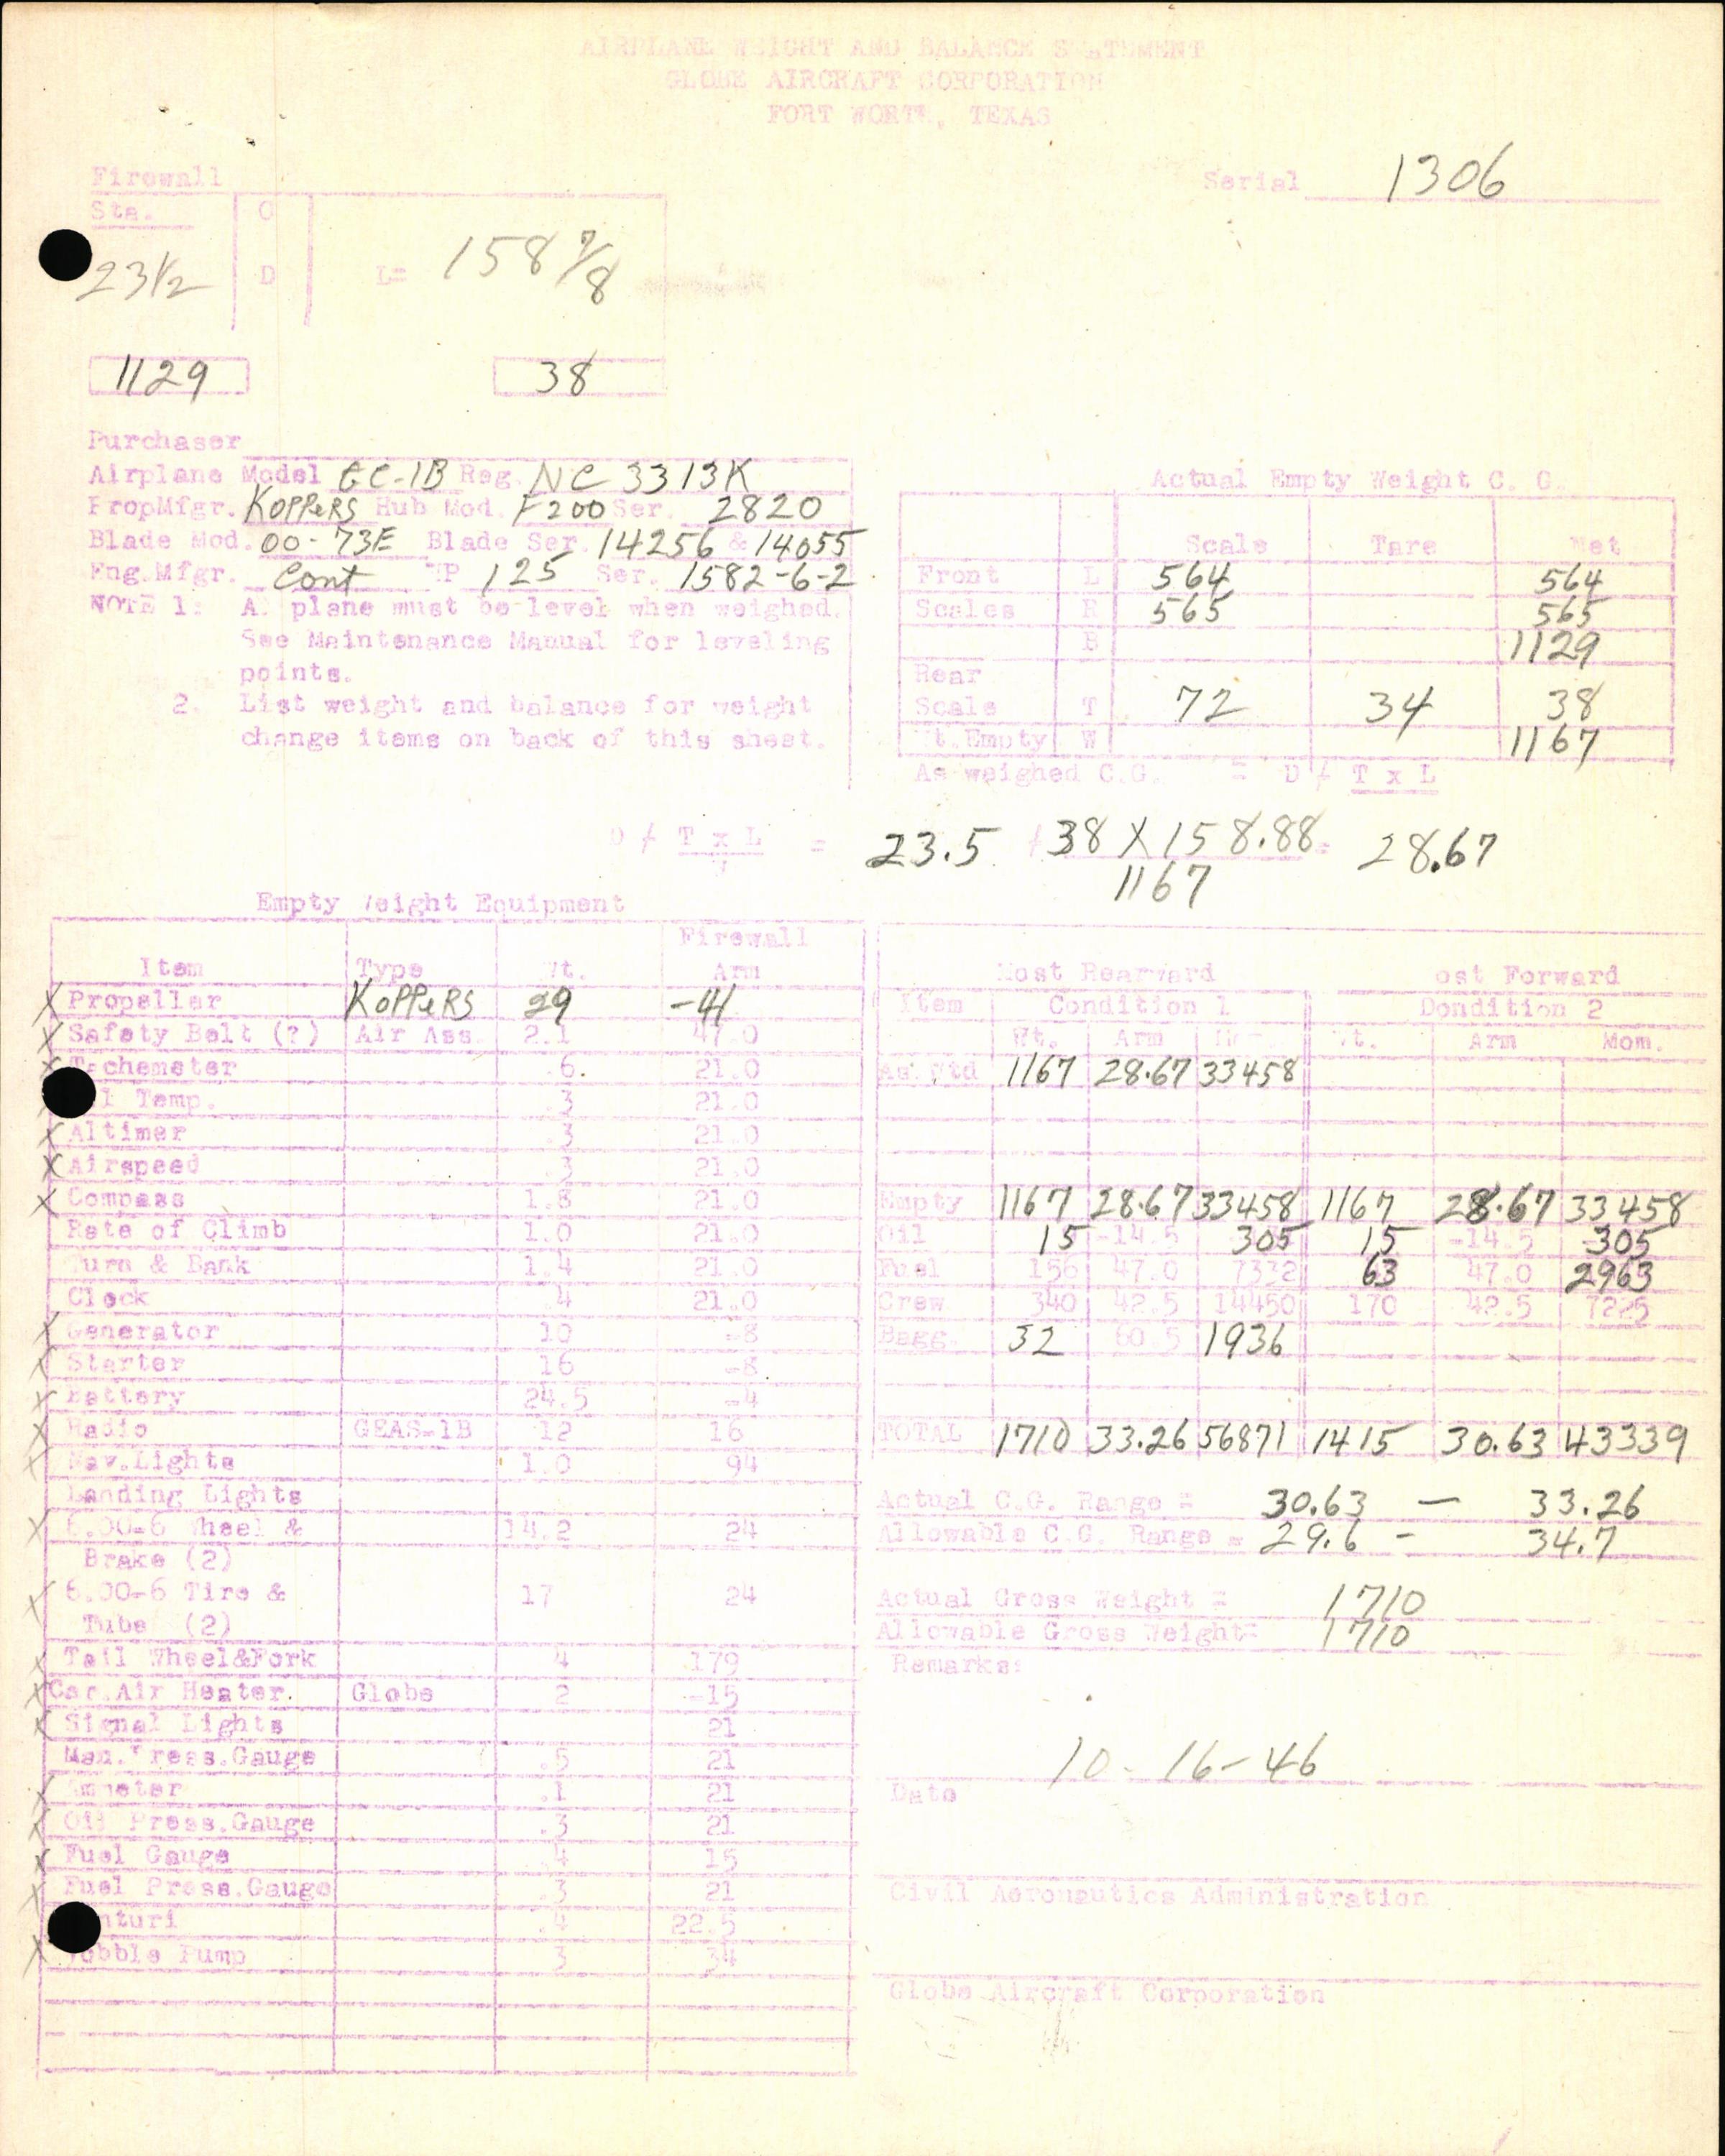 AIRPLANE WEIGHT AND BALANCE STATEMENT
GLOBE AIRCRAFT CORPORATION
FORT WORTH, TEXAS
Serial 1306
Firewall
Sta. O
23 1/2 D L= 158 7/8
1129 38
Purchaser
Airplane Model GC-1B Reg. NC 3313K
PropMfgr. KOPPERS Hub Mod. F200 Ser. 2820
Blade Mod. 00-73E Blade Ser. 14256 & 14055
Eng.Mfgr. Cont HP 125 Ser. 1582-6-2
NOTE 1: A plane must be level when weighed.
See Maintenance Manual for leveling
points.
2. List weight and balance for weight
change items on back of this sheet.
Actual Empty Weight C. G.
Scale Tare Net
Front L 564 564
Scales R 565 565
B 1129
Rear
Scale T 72 34 38
Wt.Empty W 1167
As weighed C.G. = D / T x L
D / T x L = 23.5 / 38 X 158.88 = 28.67
W 1167
Empty Weight Equipment
Firewall
Item Type Wt. Arm
X Propeller KOPPERS 29 -41
X Safety Belt (?) Air Ass. 2.1 47.0
X Tachemeter .6 21.0
Oil Temp. .3 21.0
X Altimer .3 21.0
X Airspeed .3 21.0
X Compass 1.8 21.0
Rate of Climb 1.0 21.0
Turn & Bank 1.4 21.0
Clock .4 21.0
X Generator 10 -8
X Starter 16 -8
X Battery 24.5 -4
X Radio GEAS-1B 12 16
X Nav.Lights 1.0 94
Landing Lights
X 6.00-6 Wheel & 14.2 24
Brake (2)
X 6.00-6 Tire & 17 24
Tube (2)
X Tail Wheel&Fork 4 179
X Car.Air Heater. Globe 2 -15
X Signal Lights 21
Man.Press.Gauge .5 21
X Ammeter .1 21
X Oil Press.Gauge .3 21
X Fuel Gauge .4 15
X Fuel Press.Gauge .3 21
Venturi .4 22.5
X Wobble Pump 3 34
Most Rearward Most Forward
Item Condition 1 Dondition 2
Wt. Arm Mom. Wt. Arm Mom.
As Wtd 1167 28.67 33458
Empty 1167 28.67 33458 1167 28.67 33458
Oil 15 -14.5 305 15 -14.5 -305
Fuel 156 47.0 7332 63 47.0 2963
Crew 340 42.5 14450 170 42.5 7225
Bagg. 32 60.5 1936
TOTAL 1710 33.26 56871 1415 30.63 43339
Actual C.G. Range = 30.63 — 33.26
Allowable C.G. Range = 29.6 - 34.7
Actual Gross Weight = 1710
Allowable Gross Weight= 1710
Remarks:
10-16-46
Date
Civil Aeronautics Administration
Globe Aircraft Corporation